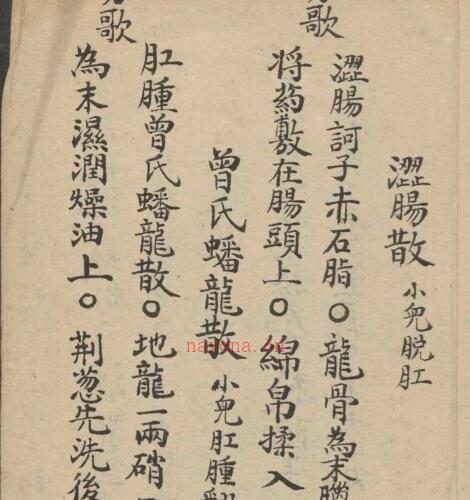 澀腸散 小兒脫肛
歌
澀腸訶子赤石脂○龍骨為末
将藥敷在腸頭上○綿帛揉入
曾氏蟠龍散 小兒肛腫
歌
肛腫曾氏蟠龍散○地龍一兩硝
為末濕潤燥油上○荆葱先洗後